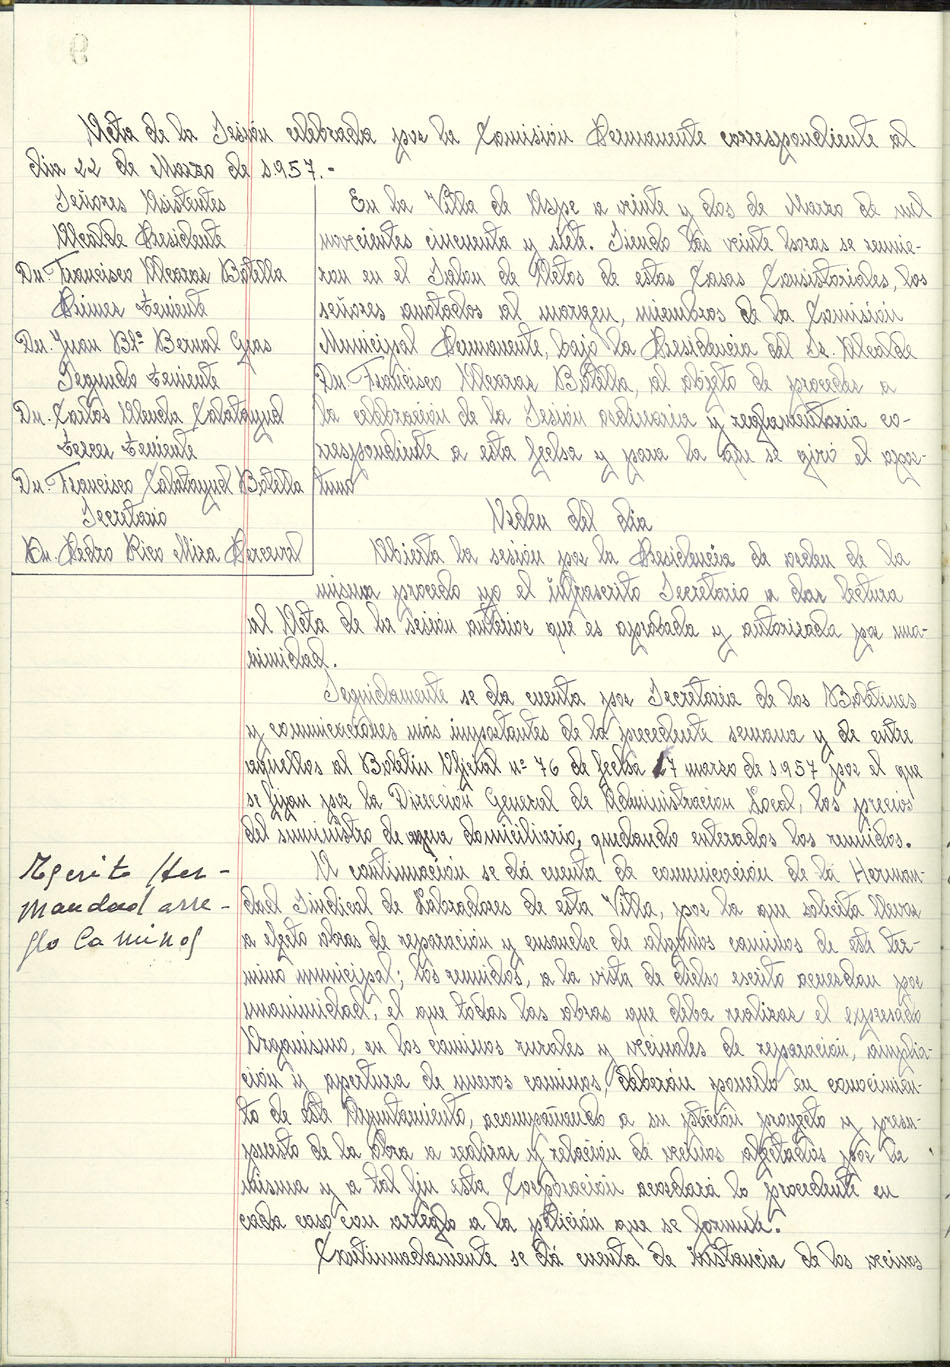 Acta de la Sesión celebrada por la Comisión Permanente correspondiente al
dia 22 de Marzo de 1.957.-
Señores Asistentes
Alcalde Presidente
Dn. Francisco Alcaras Botella
Primer Teniente
Dn. Juan Btª Bernal Cyas
Segundo Teniente
Dn. Carlos Alenda Calatayud
Tercer Teniente
Dn. Francisco Calatayud Botella
Secretario
Dn. Pedro Rico Mira Perceval
En la Villa de Aspe a veinte y dos de Marzo de mil
novecientos cincuenta y siete. Siendo las veinte horas se reunie-
ron en el Salon de Actos de estas Casas Consistoriales, los
señores anotados al margen, miembros de la Comisión
Municipal Permanente, bajo la Presidencia del Sr. Alcalde
Dn. Francisco Alcaras Botella, al objeto de proceder a
la celebración de la Sesión ordinaria y reglamentaria co-
rrespondiente a esta fecha y para la que se giró el opor-
tuno
Orden del dia
Abierta la sesión por la Presidencia de orden de la
misma procedo yo el infrascrito Secretario a dar lectura
al Acta de la sesión anterior que es aprobada y autorizada por una-
nimidad.
Seguidamente se da cuenta por Secretaria de los Boletines
y comunicaciones más importantes de la precedente semana y de entre
aquellos al Boletin Oficial nº 76 de fecha 17 marzo de 1.957 por el que
se fijan por la Dirección General de Administración Local, los precios
del suministro de agua domiciliario, quedando enterados los reunidos.
Escrito Her-
mandad arre-
glo Caminos
A continuación se dá cuenta de comunicación de la Herman-
dad Sindical de Labradores de esta Villa, por la que solicita llevar
a efecto obras de reparación y ensanche de algunos caminos de este tér-
mino municipal; los reunidos, a la vista de dicho escrito acuerdan por
unanimidad, el que todas las obras que deba realizar el expresado
Organismo, en los caminos rurales y vecinales de reparación, amplia-
ción y apertura de nuevos caminos, deberán ponerlo en conocimien-
to de este Ayuntamiento, acompañando a su petición proyecto y presu-
puesto de la obra a realizar y relación de vecinos afectados por la
misma y a tal fin esta Corporación acordará lo procedente en
cada caso con arreglo a la petición que se formule.
Continuadamente se dá cuenta de instancia de los vecinos